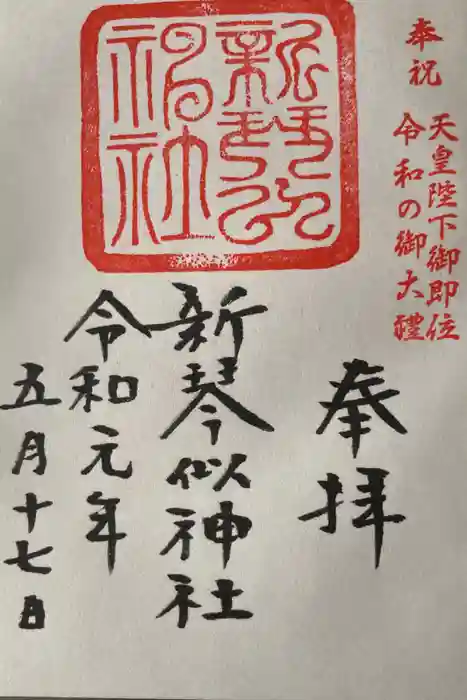 奉祝
天皇陛下御即位
令和の御大禮
奉拝
新琴似神社
令和元年
五月十七日
新琴似
神社